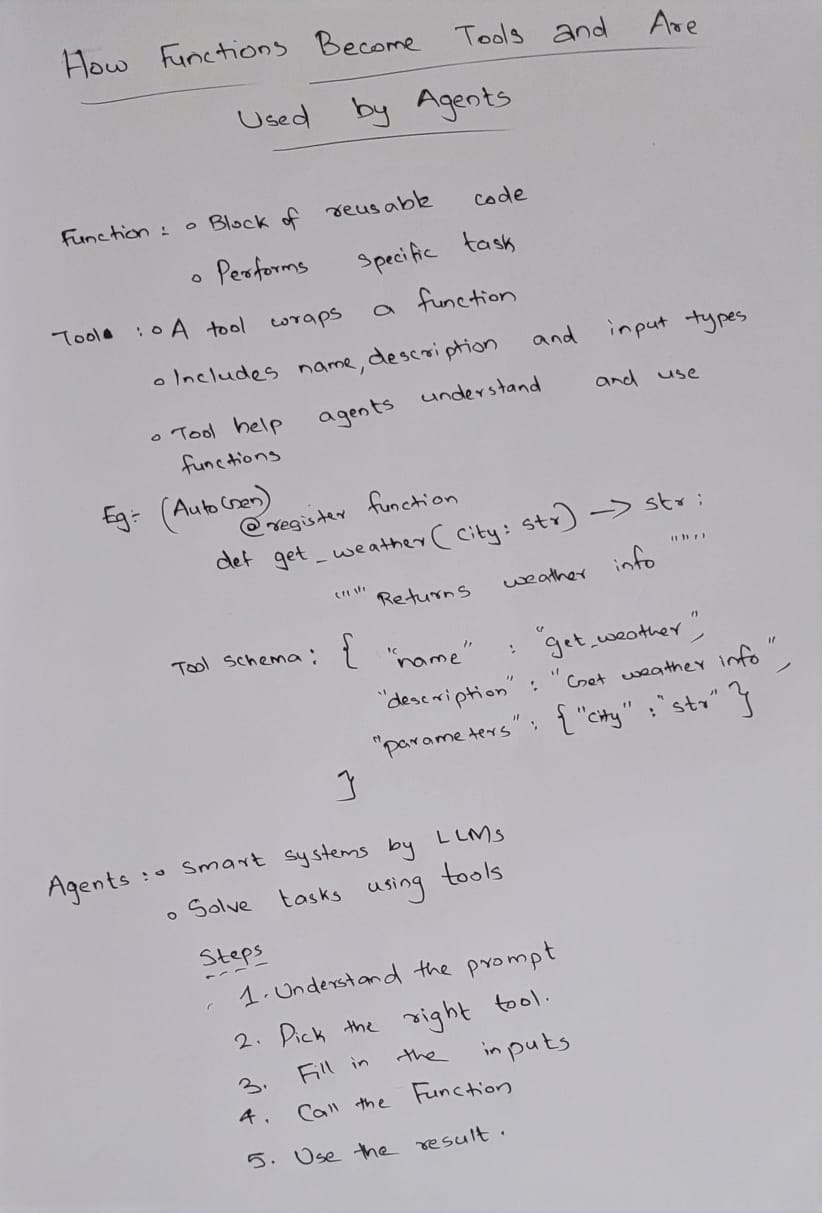 How Functions Become Tools and Are
Used by Agents
Function : o Block of reusable code
o Performs specific task
Tool : o A tool wraps a function
o Includes name, description and input types
o Tool help agents understand and use
functions
Eg:- (AutoGen)
@register function
def get_weather(City: str) -> str :
""" Returns weather info """
Tool schema : { "name" : "get_weather",
"description" : "Get weather info",
"parameters" : { "city" : "str" }
}
Agents : o Smart systems by LLMs
o Solve tasks using tools
Steps
1. Understand the prompt
2. Pick the right tool.
3. Fill in the inputs
4. Call the Function
5. Use the result.